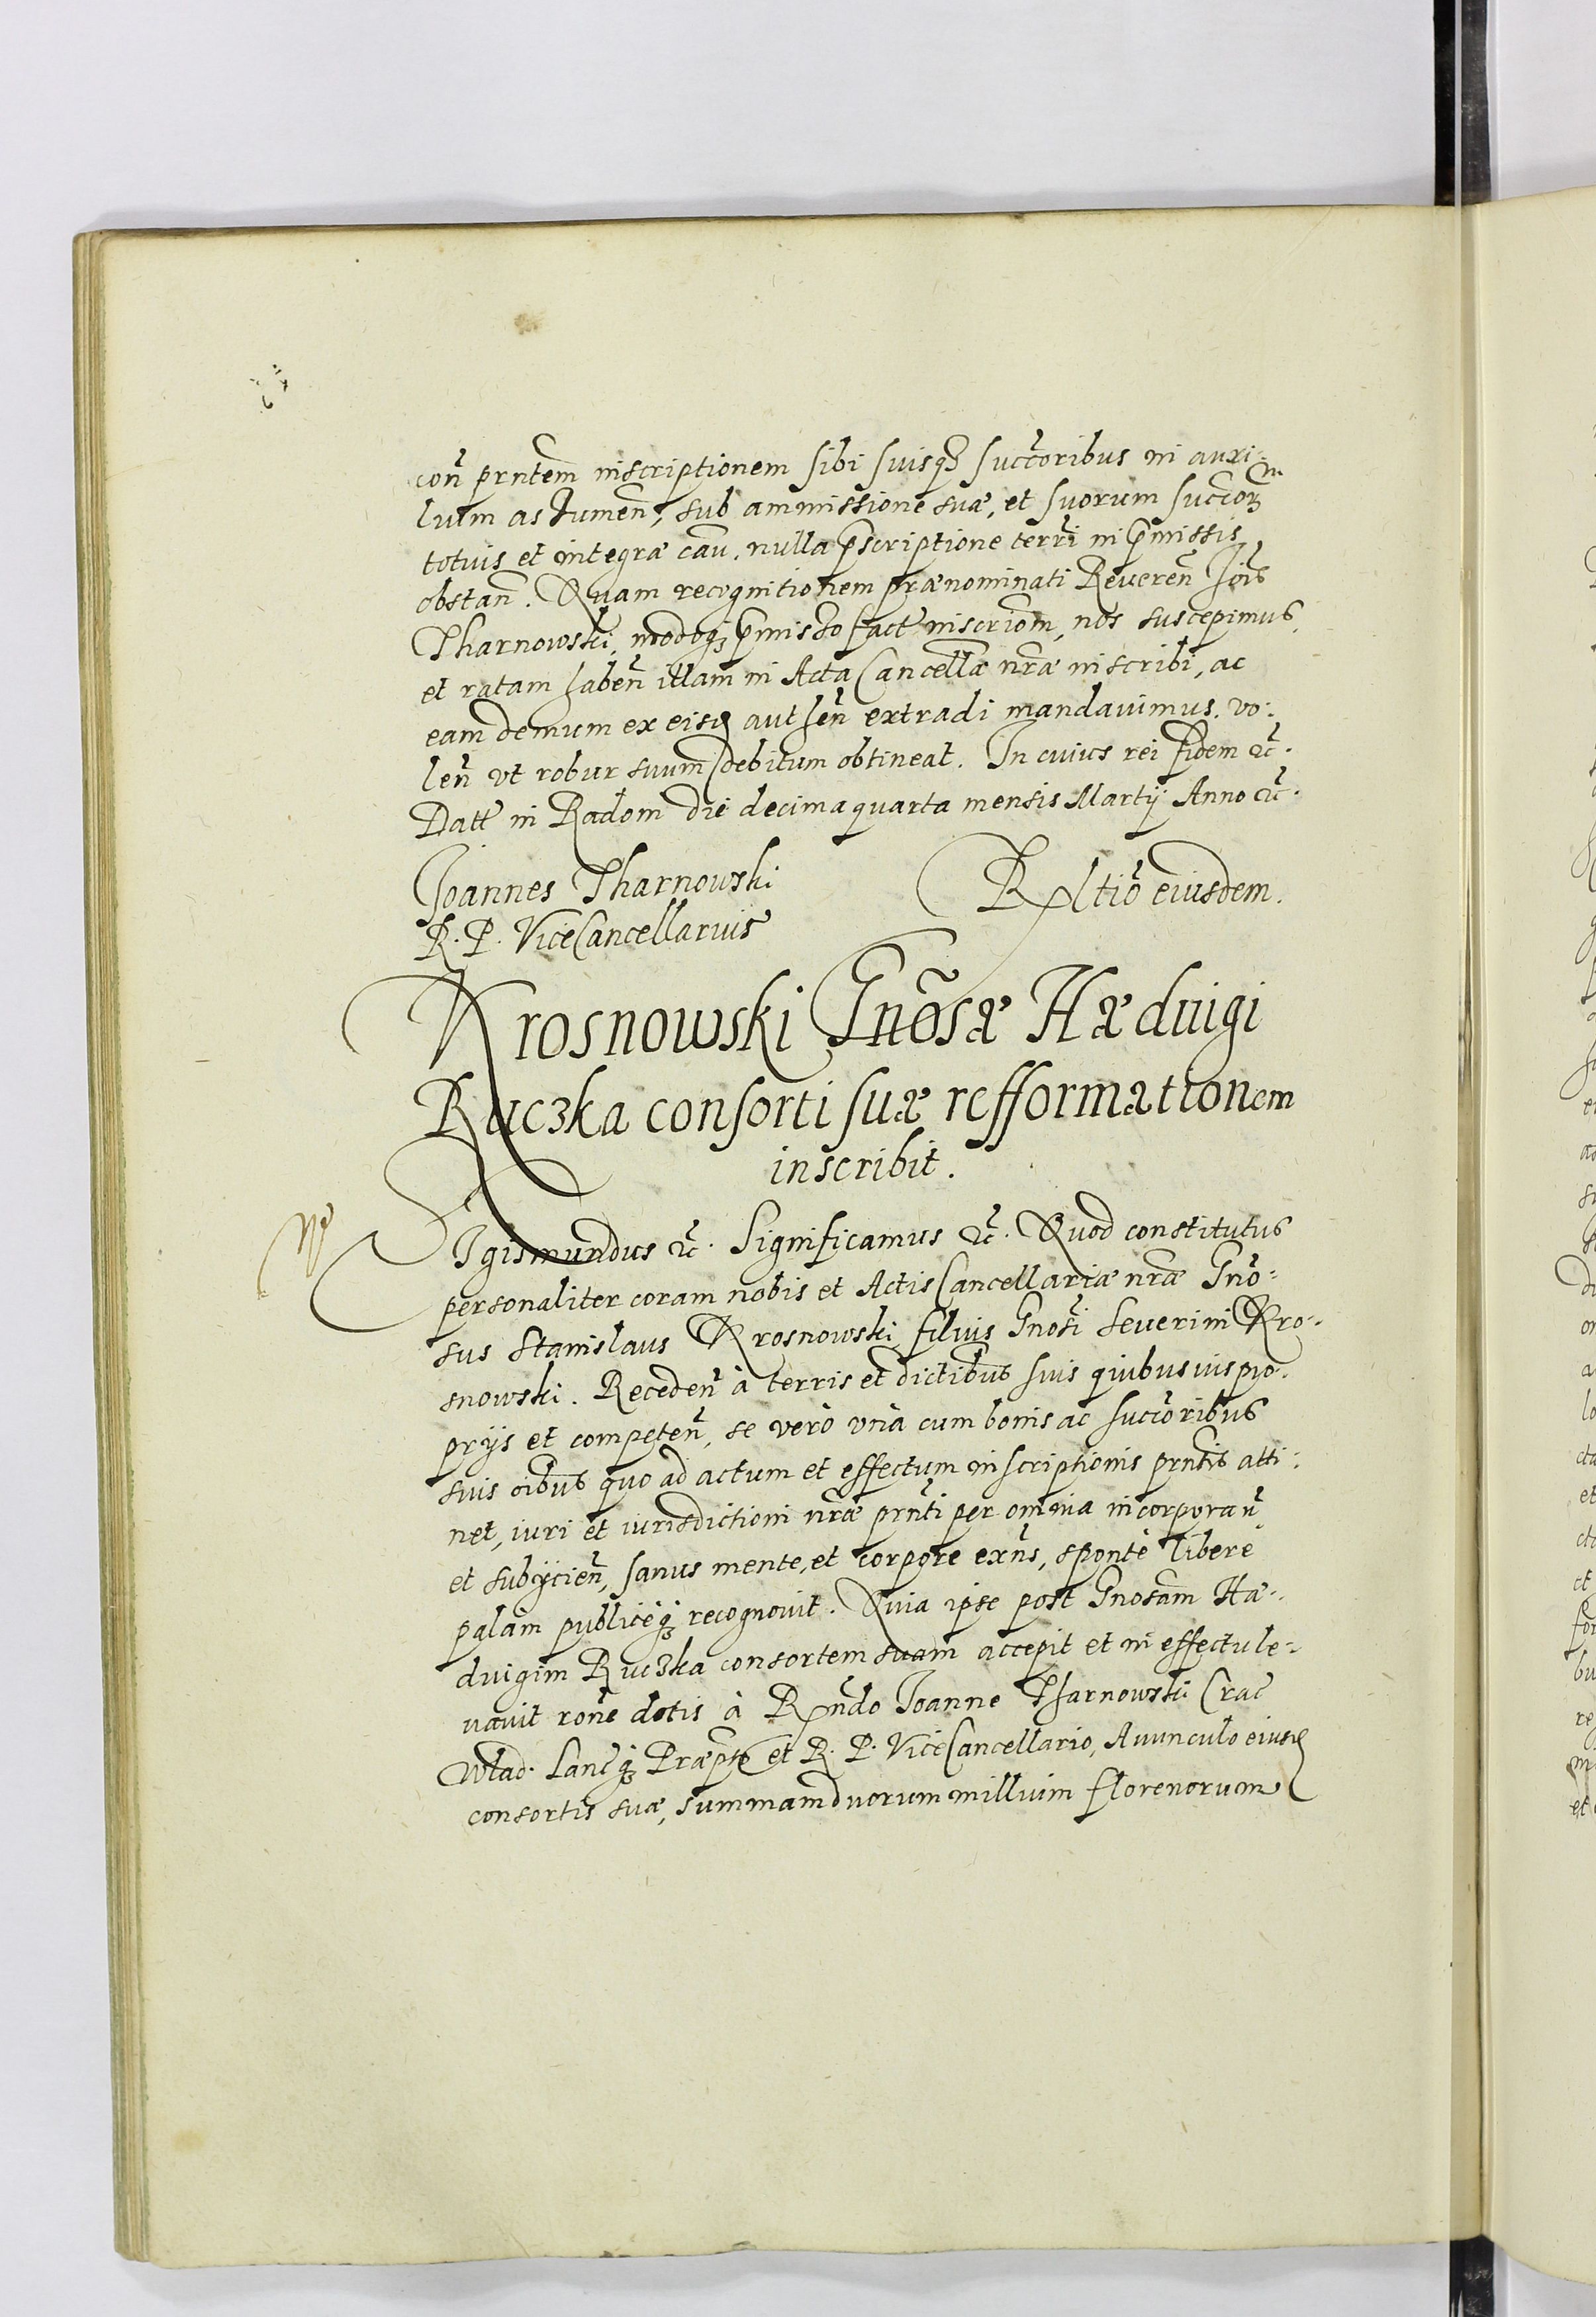 con̄ prntem inscriptionem sibi suisq₃ succoribus in auxi-
lium assumen̄, sub ammissione suæ, et suorum succorum
totius et integræ cau. nulla p̄scriptione terri in p̄missis
obstan̄. Quam recognitionem prænominati Reveren̄ Joīs
Tharnowski, modoq₃ p̄misso fact inscriom, nos suscepimus,
et ratam haben̄ illam in Acta Cancellæ nræ inscribi, ac
eam demum ex eisd authen̄ extradi mandavimus. vo-
len̄ vt robur suum debitum obtineat. In cuius rei fidem ꝛc̄.
Datt in Radom die decima quarta mensis Martij Anno ꝛc̄.
Joannes Tharnowski
R. P. ViceCancellarius
Rltio eiusdem.
Krosnowski Gnōsæ Hæduigi
Ruczka consorti suæ refformationem
inscribit.
Sigismundus ꝛc̄. Significamus ꝛc̄. Quod constitutus
personaliter coram nobis et Actis Cancellariæ nræ Gnō-
sus Stanislaus Krosnowski filius Gnosi Severini Kro-
snowski. Receden̄ à terris et dictibus suis quibusuis pro-
prijs et competen̄, se verò vnà cum bonis ac succoribus
suis oībus quo ad actum et effectum inscriptionis prntis atti-
net, iuri et iurisdictioni nræ prnti per omnia incorporan̄
et subijcien̄, sanus mente, et corpore exn̄s, spontè liberè
palam publicèq₃ recognovit. Quia ipse post Gnosam Hæ-
duigim Ruczka consortem suam accepit et in effectu le-
vavit rone dotis à Rndo Joanne Tharnowski Crac
Wlad. Lancq₃ Præpto et R. P. ViceCancellario, Avunculo eiusd
consortis suæ, summam duorum millium florenorum